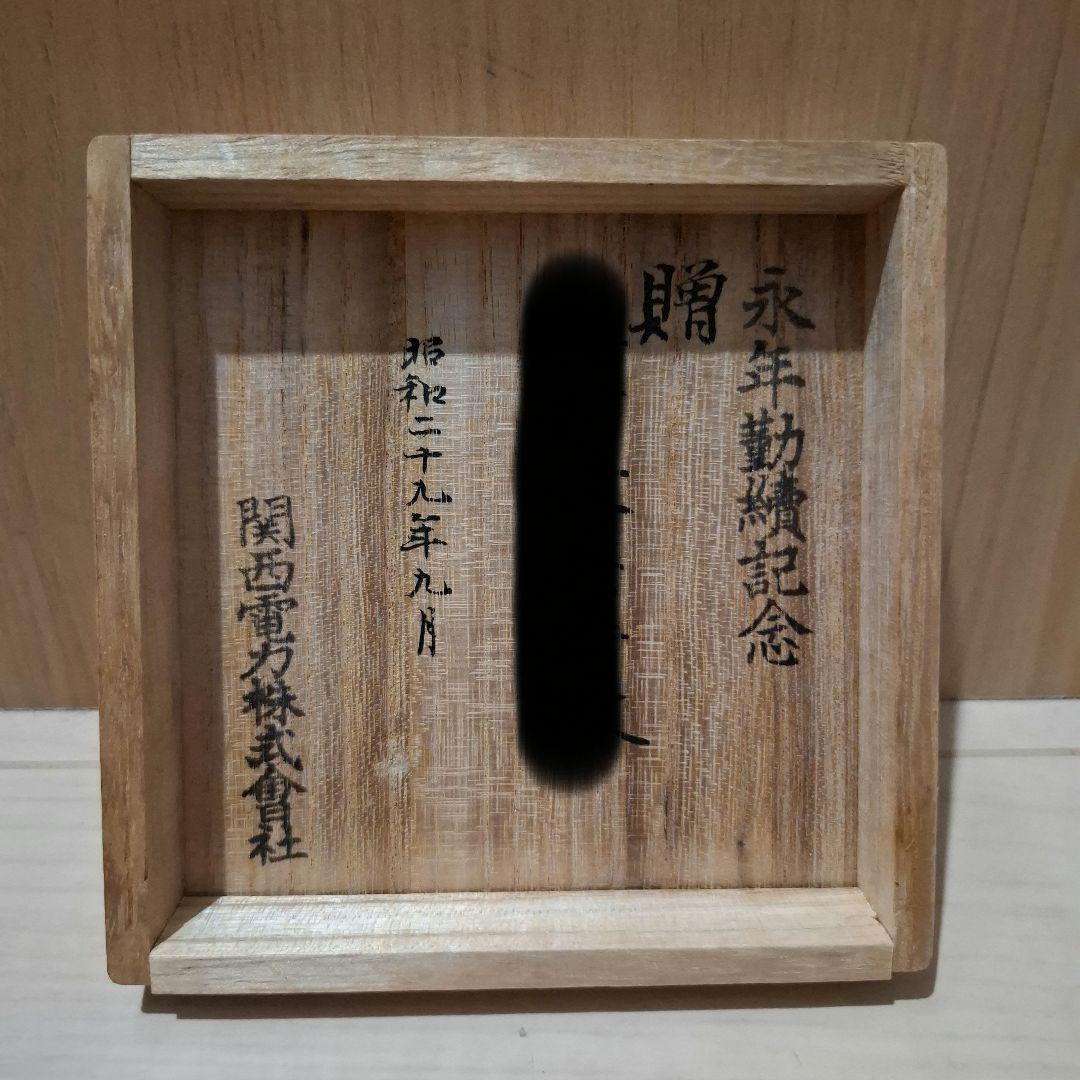 永年勤續記念
贈
昭和二十九年九月
関西電力株式會社